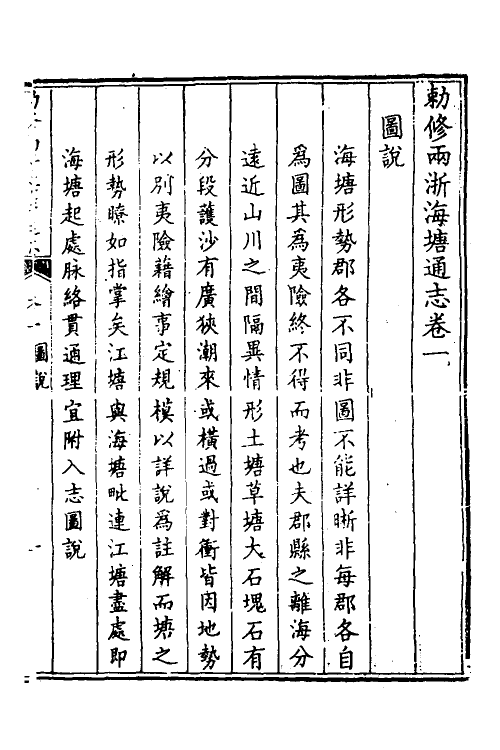 勅修兩浙海塘通志卷一
圖說
海塘形勢郡各不同非圖不能詳晰非每郡各自
爲圖其爲夷險終不得而考也夫郡縣之離海分
遠近山川之間隔異情形土塘草塘大石塊石有
分段護沙有廣狹潮來或橫過或對衝皆因地勢
以別夷險藉繪事定規模以詳說爲註解而塘之
形勢瞭如指掌矣江塘與海塘毗連江塘盡處即
海塘起處脉絡貫通理宜附入志圖說
圖說
一